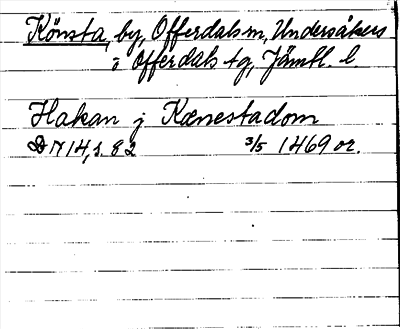 Könsta, by, Offerdals m, Undersåkers
i Offerdals tg, Jämtl. l.
Hakan j Kænestadom
DN 14, s. 82 3/5 1469 or.